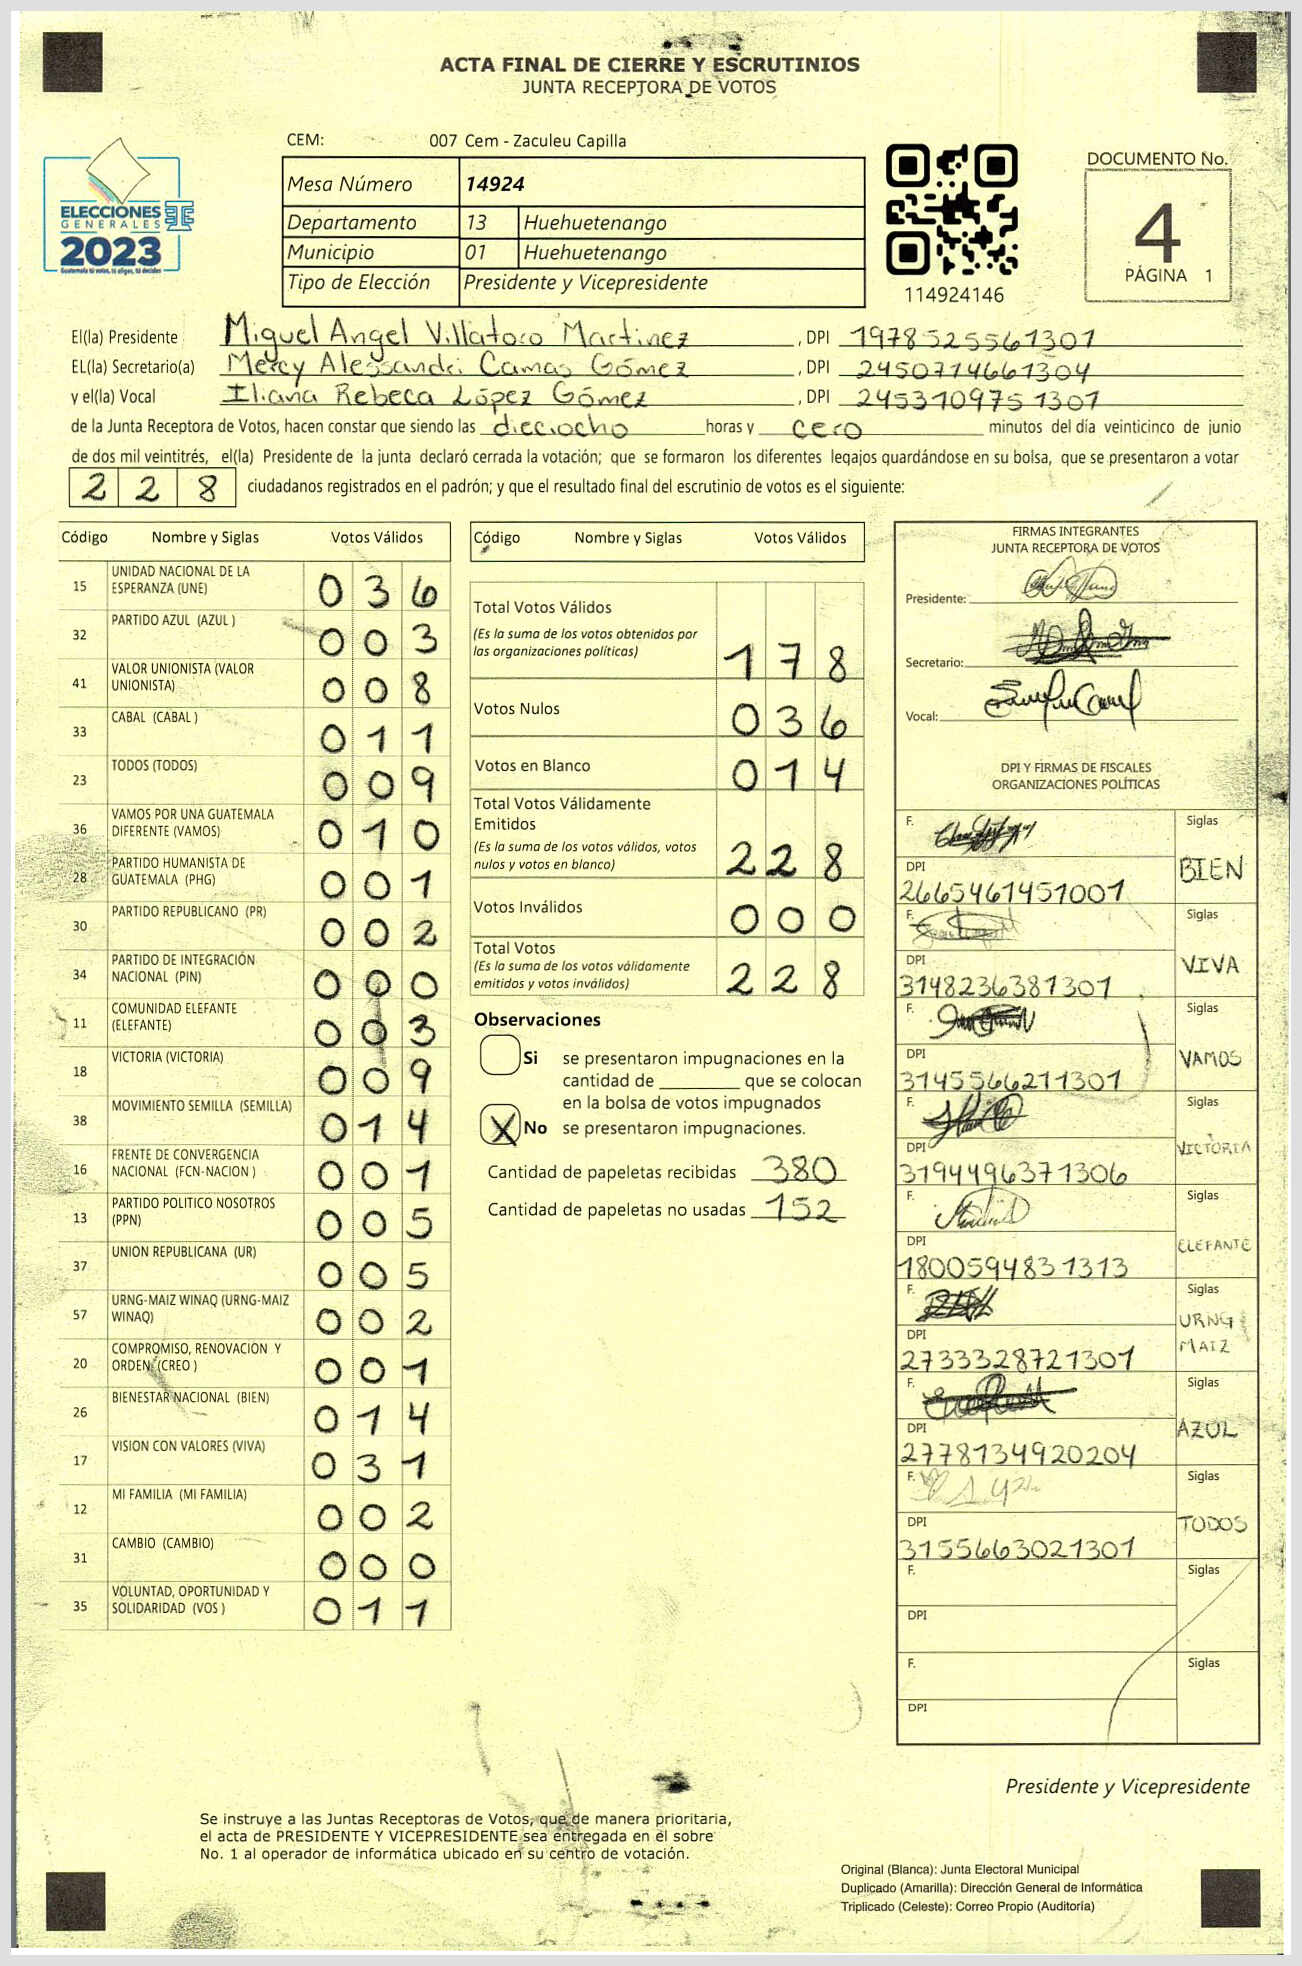 ACTA FINAL DE CIERRE Y ESCRUTINIOS
JUNTA RECEPTORA DE VOTOS
ELECCIONES
GENERALES
2023
Guatemala tú votas, tú eliges, tú decides
CEM: 007 Cem - Zaculeu Capilla
Mesa Número 14924
Departamento 13 Huehuetenango
Municipio 01 Huehuetenango
Tipo de Elección Presidente y Vicepresidente
114924146
DOCUMENTO No.
4
PÁGINA 1
El(la) Presidente Miguel Angel Villatoro Martinez, DPI 1978525561301
EL(la) Secretario(a) Mercy Alessandri Camas Gómez, DPI 2450714661304
y el(la) Vocal Iliana Rebeca López Gómez, DPI 2453109751301
de la Junta Receptora de Votos, hacen constar que siendo las dieciocho horas y cero minutos del día veinticinco de junio
de dos mil veintitrés, el(la) Presidente de la junta declaró cerrada la votación; que se formaron los diferentes legajos guardándose en su bolsa, que se presentaron a votar
228 ciudadanos registrados en el padrón; y que el resultado final del escrutinio de votos es el siguiente:
Código Nombre y Siglas Votos Válidos
15 UNIDAD NACIONAL DE LA ESPERANZA (UNE) 036
32 PARTIDO AZUL (AZUL ) 003
41 VALOR UNIONISTA (VALOR UNIONISTA) 008
33 CABAL (CABAL ) 011
23 TODOS (TODOS) 009
36 VAMOS POR UNA GUATEMALA DIFERENTE (VAMOS) 010
28 PARTIDO HUMANISTA DE GUATEMALA (PHG) 001
30 PARTIDO REPUBLICANO (PR) 002
34 PARTIDO DE INTEGRACIÓN NACIONAL (PIN) 000
11 COMUNIDAD ELEFANTE (ELEFANTE) 003
18 VICTORIA (VICTORIA) 009
38 MOVIMIENTO SEMILLA (SEMILLA) 014
16 FRENTE DE CONVERGENCIA NACIONAL (FCN-NACION ) 001
13 PARTIDO POLITICO NOSOTROS (PPN) 005
37 UNION REPUBLICANA (UR) 005
57 URNG-MAIZ WINAQ (URNG-MAIZ WINAQ) 002
20 COMPROMISO, RENOVACION Y ORDEN (CREO ) 001
26 BIENESTAR NACIONAL (BIEN) 014
17 VISION CON VALORES (VIVA) 031
12 MI FAMILIA (MI FAMILIA) 002
31 CAMBIO (CAMBIO) 000
35 VOLUNTAD, OPORTUNIDAD Y SOLIDARIDAD (VOS ) 011
Código Nombre y Siglas Votos Válidos
Total Votos Válidos
(Es la suma de los votos obtenidos por
las organizaciones políticas) 178
Votos Nulos 036
Votos en Blanco 014
Total Votos Válidamente
Emitidos
(Es la suma de los votos válidos, votos
nulos y votos en blanco) 228
Votos Inválidos 000
Total Votos
(Es la suma de los votos válidamente
emitidos y votos inválidos) 228
Observaciones
Si se presentaron impugnaciones en la
cantidad de ________ que se colocan
en la bolsa de votos impugnados
X No se presentaron impugnaciones.
Cantidad de papeletas recibidas 380
Cantidad de papeletas no usadas 152
FIRMAS INTEGRANTES
JUNTA RECEPTORA DE VOTOS
Presidente:
Secretario:
Vocal:
DPI Y FIRMAS DE FISCALES
ORGANIZACIONES POLÍTICAS
F. Siglas
DPI BIEN
2665461451001
F. Siglas
DPI VIVA
3148236381301
F. Siglas
DPI VAMOS
3145566211301
F. Siglas
DPI VICTORIA
3194496371306
F. Siglas
DPI ELEFANTE
1800594831313
F. Siglas
DPI URNG MAIZ
2733328721301
F. Siglas
DPI AZUL
2778134920204
F. Siglas
DPI TODOS
3155663021301
F. Siglas
DPI
F. Siglas
DPI
Presidente y Vicepresidente
Se instruye a las Juntas Receptoras de Votos, que de manera prioritaria,
el acta de PRESIDENTE Y VICEPRESIDENTE sea entregada en el sobre
No. 1 al operador de informática ubicado en su centro de votación.
Original (Blanca): Junta Electoral Municipal
Duplicado (Amarilla): Dirección General de Informática
Triplicado (Celeste): Correo Propio (Auditoría)